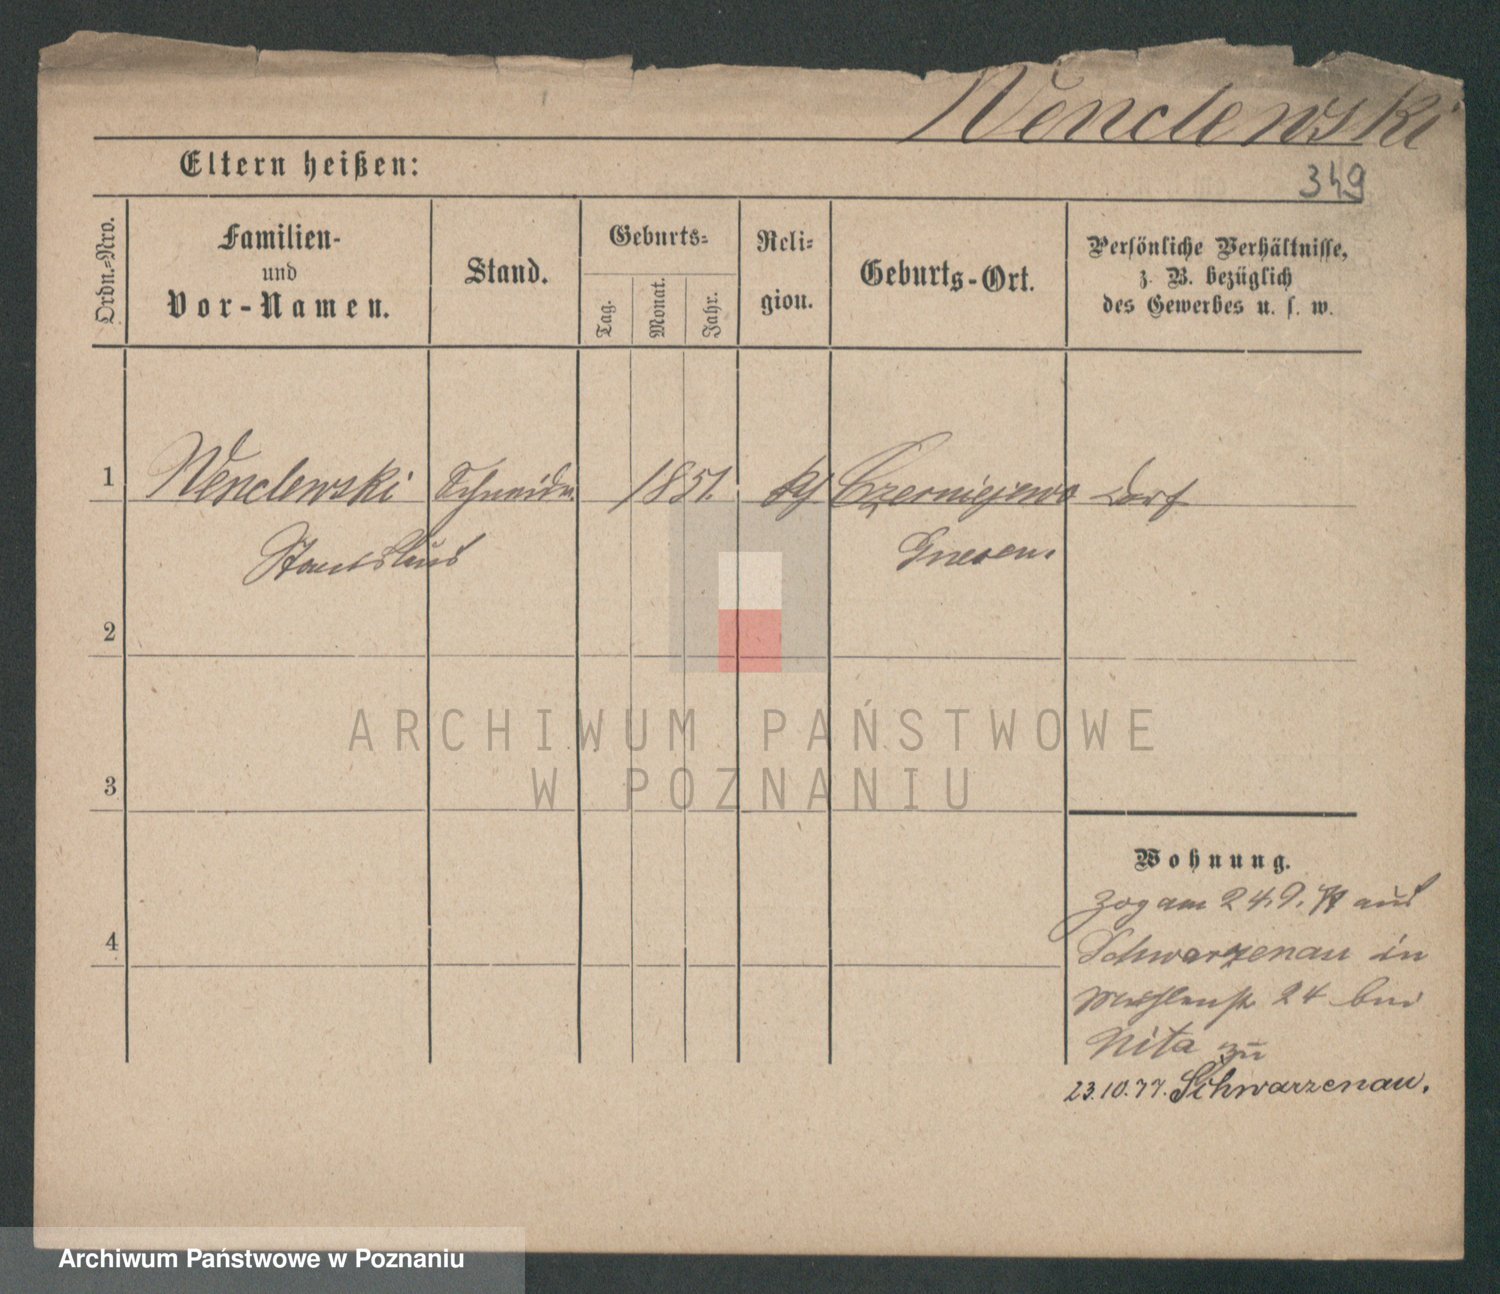 Wenclewski
349
Eltern heißen:
Ordn.=Nro.
Familien-
und
Vor-Namen.
Stand.
Geburts=
Tag.
Monat.
Jahr.
Reli=
gion.
Geburts-Ort.
Persönliche Verhältnisse,
z. B. bezüglich
des Gewerbes u. s. w.
1
Wenclewski Schneider 1851. Czerniejewo Dorf
Stanislaus Gnesen.
2
3
4
Wohnung.
zog am 24.9. 77 aus
Schwarzenau in
Mühlenstr 24 bei
Nita zu
23.10.77. Schwarzenau.
ARCHIWUM PAŃSTWOWE
W POZNANIU
Archiwum Państwowe w Poznaniu